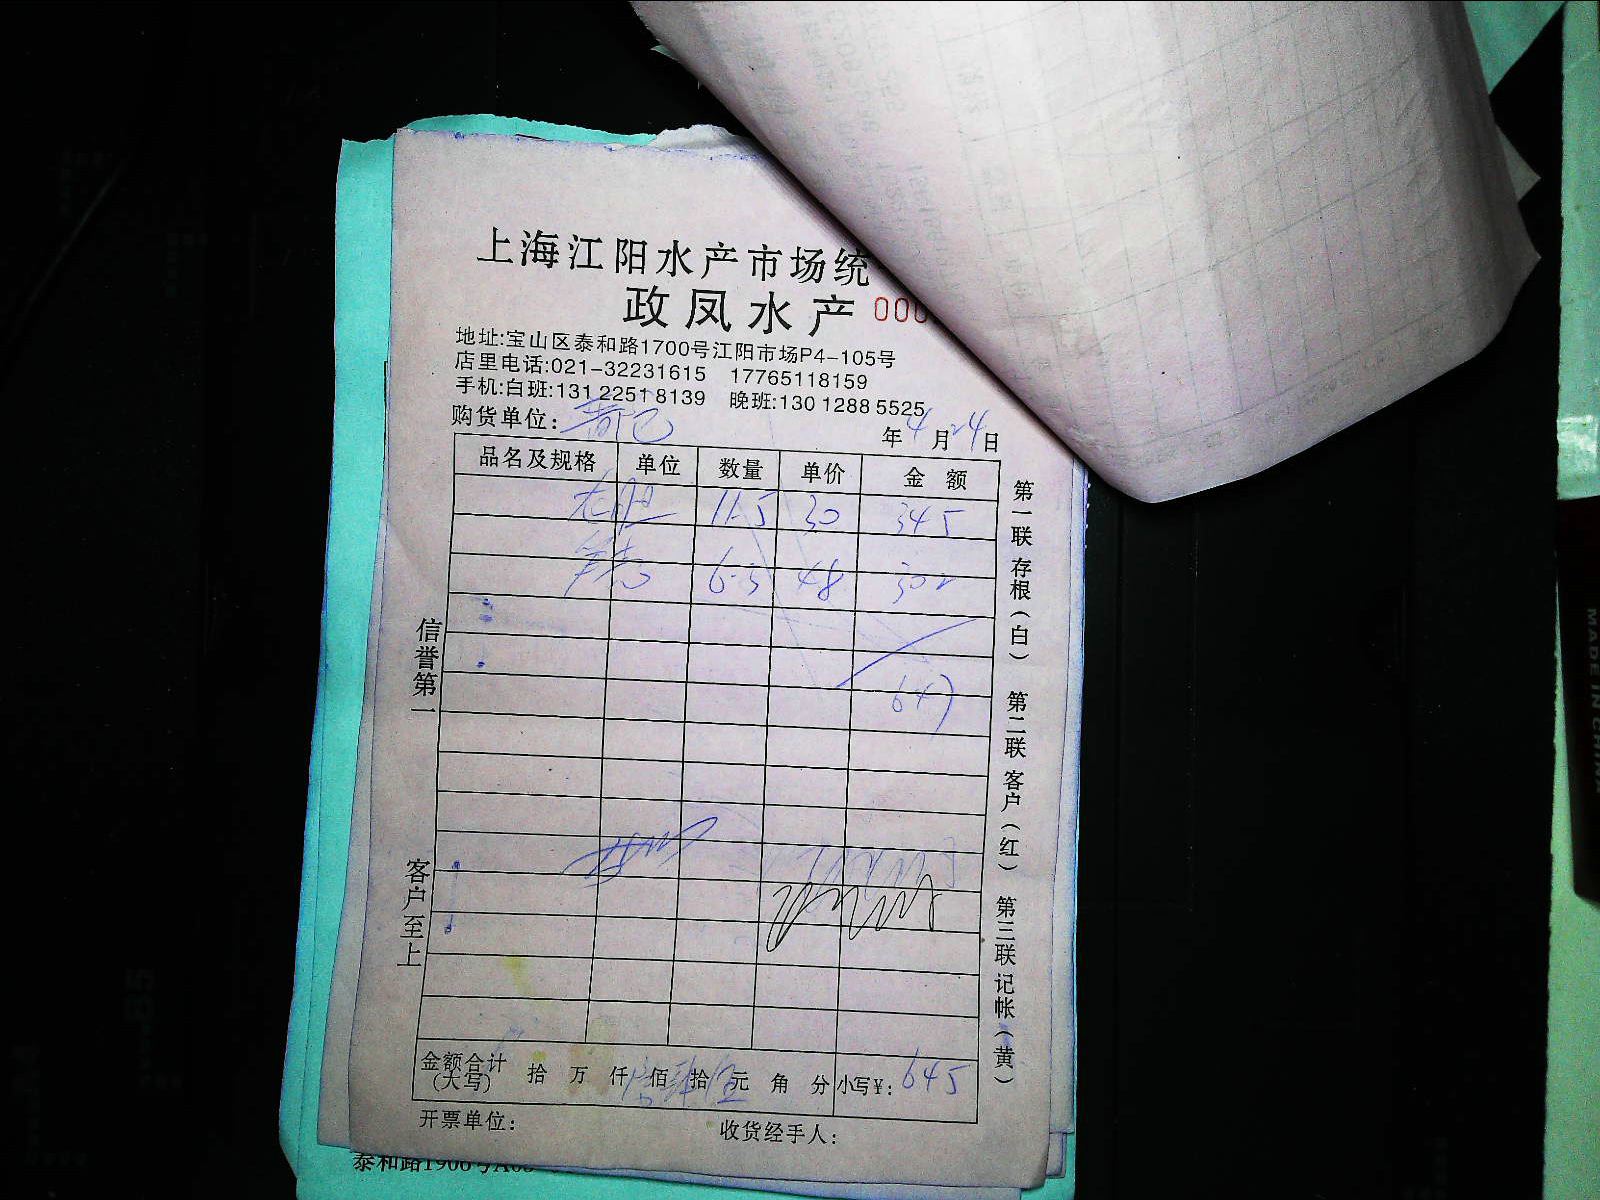 上海江阳水产市场统
政凤水产 000
地址:宝山区泰和路1700号江阳市场P4-105号
店里电话:021-32231615 17765118159
手机:白班:131 2251 8139 晚班:130 1288 5525
购货单位:
年4月24日
品名及规格 单位 数量 单价 金额
11.5 30 345
6.3 48 302
647
信誉第一
客户至上
第一联 存根(白) 第二联 客户(红) 第三联 记帐(黄)
金额合计(大写) 拾 万 仟 佰 拾 元 角 分 小写¥: 645
开票单位: 收货经手人:
MADE IN CHINA